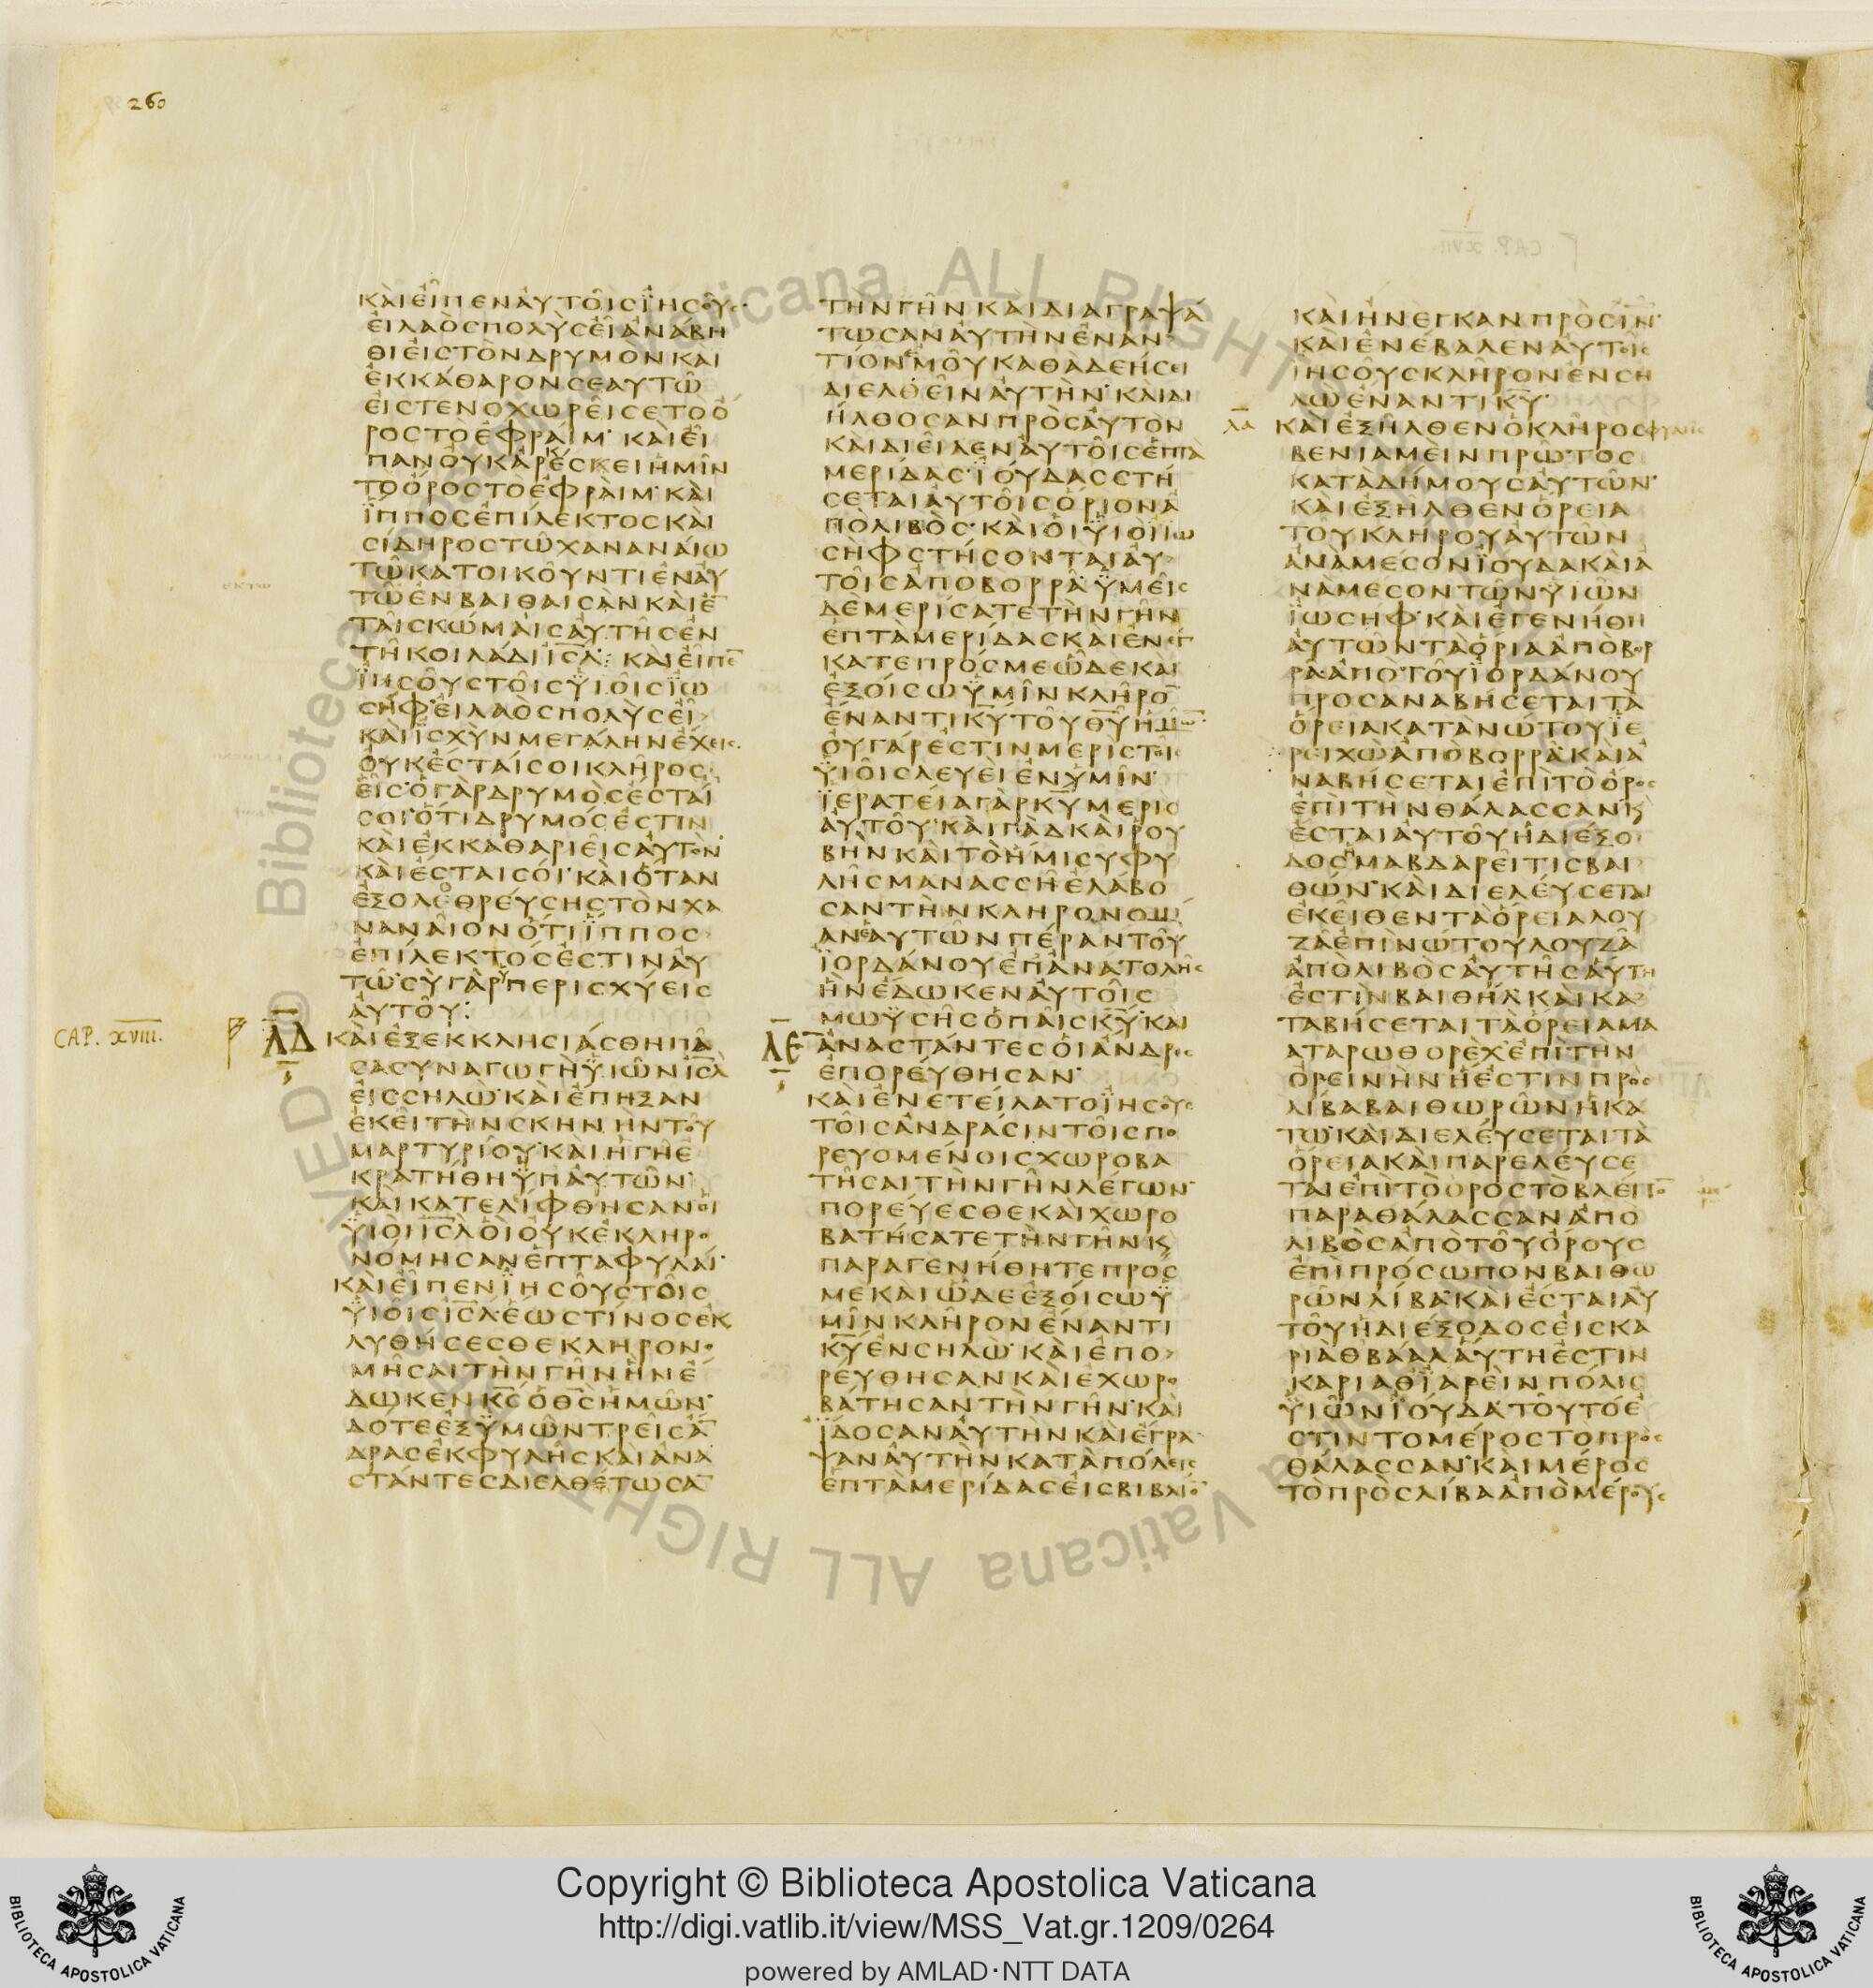 260
ΚΑΙΕΙΠΕΝΑΥΤΟΙΣΙΗΣΟΥΣ
ΕΙΛΑΟΣΠΟΛΥΣΕΙΑΝΑΒΗ
ΘΙΕΙΣΤΟΝΔΡΥΜΟΝΚΑΙ
ΕΚΚΑΘΑΡΟΝΣΕΑΥΤΩ
ΕΙΣΤΕΝΟΧΩΡΕΙΣΕΤΟΟ
ΡΟΣΤΟΕΦΡΑΙΜ·ΚΑΙΕΙ
ΠΑΝΟΥΚΑΡΕΣΚΕΙΗΜΙΝ
ΤΟΟΡΟΣΤΟΕΦΡΑΙΜ·ΚΑΙ
ΙΠΠΟΣΕΠΙΛΕΚΤΟΣΚΑΙ
ΣΙΔΗΡΟΣΤΩΧΑΝΑΝΑΙΩ
ΤΩΚΑΤΟΙΚΟΥΝΤΙΕΝΑΥ
ΤΩΕΝΒΑΙΘΑΙΣΑΝΚΑΙΕ̅
ΤΑΙΣΚΩΜΑΙΣΑΥΤΗΣΕΝ
ΤΗΚΟΙΛΑΔΙΙ̅Σ̅Λ̅:ΚΑΙΕΙΠΕ̅
ΙΗΣΟΥΣΤΟΙΣΥΙΟΙΣΙΩ
ΣΗΦ·ΕΙΛΑΟΣΠΟΛΥΣΕΙ
ΚΑΙΙΣΧΥΝΜΕΓΑΛΗΝΕΧΕΙΣ
ΟΥΚΕΣΤΑΙΣΟΙΚΛΗΡΟΣ
ΕΙΣ·ΟΓΑΡΔΡΥΜΟΣΕΣΤΑΙ
ΣΟΙ·ΟΤΙΔΡΥΜΟΣΕΣΤΙΝ
ΚΑΙΕΚΚΑΘΑΡΙΕΙΣΑΥΤΟΝ
ΚΑΙΕΣΤΑΙΣΟΙ·ΚΑΙΟΤΑΝ
ΕΞΟΛΕΘΡΕΥΣΗΣΤΟΝΧΑ
ΝΑΝΑΙΟΝΟΤΙΙΠΠΟΣ
ΕΠΙΛΕΚΤΟΣΕΣΤΙΝΑΥ
ΤΩ·ΣΥΓΑΡΥΠΕΡΙΣΧΥΕΙΣ
ΑΥΤΟΥ:
CAP. xviii.
ΛΔ ΚΑΙΕΞΕΚΚΛΗΣΙΑΣΘΗΠΑ
ΣΑΣΥΝΑΓΩΓΗΥΙΩΝΙ̅Σ̅Λ̅
ΕΙΣΣΗΛΩ·ΚΑΙΕΠΗΞΑΝ
ΕΚΕΙΤΗΝΣΚΗΝΗΝΤΟΥ
ΜΑΡΤΥΡΙΟΥ·ΚΑΙΗΓΗΕ
ΚΡΑΤΗΘΗΥΠΑΥΤΩΝ
ΚΑΙΚΑΤΕΛΙΦΘΗΣΑΝΟΙ
ΥΙΟΙΙ̅Σ̅Λ̅ΟΙΟΥΚΕΚΛΗΡΟ
ΝΟΜΗΣΑΝΕΠΤΑΦΥΛΑΙ·
ΚΑΙΕΙΠΕΝΙΗΣΟΥΣΤΟΙΣ
ΥΙΟΙΣΙ̅Σ̅Λ̅ΕΩΣΤΙΝΟΣΕΚ
ΛΥΘΗΣΕΣΘΕΚΛΗΡΟΝΟ
ΜΗΣΑΙΤΗΝΓΗΝΗΝΕ
ΔΩΚΕΝΚ̅Σ̅ΟΘ̅Σ̅ΗΜΩΝ·
ΔΟΤΕΕΞΥΜΩΝΤΡΕΙΣΑ̅
ΔΡΑΣΕΚΦΥΛΗΣΚΑΙΑΝΑ
ΣΤΑΝΤΕΣΔΙΕΛΘΕΤΩΣΑ̅
ΤΗΝΓΗΝΚΑΙΔΙΑΓΡΑΨΑ
ΤΩΣΑΝΑΥΤΗΝΕΝΑΝ
ΤΙΟΝΕΜΟΥΚΑΘΑΔΕΗΣΕΙ
ΔΙΕΛΘΕΙΝΑΥΤΗΝ·ΚΑΙΔΙ
ΗΛΘΟΣΑΝΠΡΟΣΑΥΤΟΝ
ΚΑΙΔΙΕΙΛΕΝΑΥΤΟΙΣΕΠΤΑ
ΜΕΡΙΔΑΣ·ΙΟΥΔΑΣΣΤΗ
ΣΕΤΑΙΑΥΤΟΙΣΟΡΙΟΝΑ
ΠΟΛΙΒΟΣ·ΚΑΙΟΙΥΙΟΙΙΩ
ΣΗΦΣΤΗΣΟΝΤΑΙΑΥ
ΤΟΙΣΑΠΟΒΟΡΡΑ·ΥΜΕΙΣ
ΔΕΜΕΡΙΣΑΤΕΤΗΝΓΗΝ
ΕΠΤΑΜΕΡΙΔΑΣΚΑΙΕΝΕΓ
ΚΑΤΕΠΡΟΣΜΕΩΔΕΚΑΙ
ΕΞΟΙΣΩΥΜΙΝΚΛΗΡΟ̅
ΕΝΑΝΤΙΚ̅Υ̅ΤΟΥΘ̅Υ̅ΗΜΩ̅·
ΟΥΓΑΡΕΣΤΙΝΜΕΡΙΣΤΟΙΣ
ΥΙΟΙΣΛΕΥΕΙΕΝΥΜΙΝ·
ΙΕΡΑΤΕΙΑΓΑΡΚ̅Υ̅ΜΕΡΙΣ
ΑΥΤΟΥ·ΚΑΙΓΑΔΚΑΙΡΟΥ
ΒΗΝΚΑΙΤΟΗΜΙΣΥΦΥ
ΛΗΣΜΑΝΑΣΣΗΕΛΑΒΟ
ΣΑΝΤΗΝΚΛΗΡΟΝΟΜΙ
ΑΝΕΑΥΤΩΝΠΕΡΑΝΤΟΥ
ΙΟΡΔΑΝΟΥΕΠΑΝΑΤΟΛΗΣ
ΗΝΕΔΩΚΕΝΑΥΤΟΙΣ
ΜΩΥΣΗΣΟΠΑΙΣΚ̅Υ̅·ΚΑΙ
ΛΕ ΑΝΑΣΤΑΝΤΕΣΟΙΑΝΔΡΕΣ
ΕΠΟΡΕΥΘΗΣΑΝ·
ΚΑΙΕΝΕΤΕΙΛΑΤΟΙΗΣΟΥΣ
ΤΟΙΣΑΝΔΡΑΣΙΝΤΟΙΣΠΟ
ΡΕΥΟΜΕΝΟΙΣΧΩΡΟΒΑ
ΤΗΣΑΙΤΗΝΓΗΝΛΕΓΩΝ·
ΠΟΡΕΥΕΣΘΕΚΑΙΧΩΡΟ
ΒΑΤΗΣΑΤΕΤΗΝΓΗΝΚ
ΠΑΡΑΓΕΝΗΘΗΤΕΠΡΟΣ
ΜΕΚΑΙΩΔΕΕΞΟΙΣΩΥ
ΜΙΝΚΛΗΡΟΝΕΝΑΝΤΙ
Κ̅Υ̅ΕΝΣΗΛΩ·ΚΑΙΕΠΟ
ΡΕΥΘΗΣΑΝΚΑΙΕΧΩΡΟ
ΒΑΤΗΣΑΝΤΗΝΓΗΝ·ΚΑΙ
ΙΔΟΣΑΝΑΥΤΗΝΚΑΙΕΓΡΑ
ΨΑΝΑΥΤΗΝΚΑΤΑΠΟΛΕΙΣ
ΕΠΤΑΜΕΡΙΔΑΣΕΙΣΒΙΒΛΙΟ̅
ΚΑΙΗΝΕΓΚΑΝΠΡΟΣΙ̅Ν̅·
ΚΑΙΕΝΕΒΑΛΕΝΑΥΤΟΙΣ
ΙΗΣΟΥΣΚΛΗΡΟΝΕΝΣΗ
ΛΩΕΝΑΝΤΙΚ̅Υ̅·
ΚΑΙΕΞΗΛΘΕΝΟΚΛΗΡΟΣΦΥΛΗΣ
ΒΕΝΙΑΜΕΙΝΠΡΩΤΟΣ
ΚΑΤΑΔΗΜΟΥΣΑΥΤΩΝ·
ΚΑΙΕΞΗΛΘΕΝΟΡΕΙΑ
ΤΟΥΚΛΗΡΟΥΑΥΤΩΝ
ΑΝΑΜΕΣΟΝΙΟΥΔΑΚΑΙΑ
ΝΑΜΕΣΟΝΤΩΝΥΙΩΝ
ΙΩΣΗΦ·ΚΑΙΕΓΕΝΗΘΗ
ΑΥΤΩΝΤΑΟΡΙΑΑΠΟΒΟΡ
ΡΑ·ΑΠΟΤΟΥΙΟΡΔΑΝΟΥ
ΠΡΟΣΑΝΑΒΗΣΕΤΑΙΤΑ
ΟΡΕΙΑΚΑΤΑΝΩΤΟΥΙΕ
ΡΕΙΧΩΑΠΟΒΟΡΡΑ·ΚΑΙΑ
ΝΑΒΗΣΕΤΑΙΕΠΙΤΟΟΡΟΣ
ΕΠΙΤΗΝΘΑΛΑΣΣΑΝ·Κ
ΕΣΤΑΙΑΥΤΟΥΗΔΙΕΞΟ
ΔΟΣΗΜΑΒΔΑΡΕΙΤΙΣΒΑΙ
ΘΩΝ·ΚΑΙΔΙΕΛΕΥΣΕΤΑΙ
ΕΚΕΙΘΕΝΤΑΟΡΕΙΑΛΟΥ
ΖΑΕΠΙΝΩΤΟΥΛΟΥΖΑ
ΑΠΟΛΙΒΟΣΑΥΤΗΣΑΥΤΗ
ΕΣΤΙΝΒΑΙΘΗΛ·ΚΑΙΚΑ
ΤΑΒΗΣΕΤΑΙΤΑΟΡΕΙΑΜΑ
ΑΤΑΡΩΘΟΡΕΧ·ΕΠΙΤΗΝ
ΟΡΕΙΝΗΝΗΕΣΤΙΝΠΡΟΣ
ΛΙΒΑΒΑΙΘΩΡΩΝΗΚΑ
ΤΩ·ΚΑΙΔΙΕΛΕΥΣΕΤΑΙΤΑ
ΟΡΕΙΑΚΑΙΠΑΡΕΛΕΥΣΕ
ΤΑΙΕΠΙΤΟΟΡΟΣΤΟΒΛΕΠΟ̅
ΠΑΡΑΘΑΛΑΣΣΑΝΑΠΟ
ΛΙΒΟΣΑΠΟΤΟΥΟΡΟΥΣ
ΕΠΙΠΡΟΣΩΠΟΝΒΑΙΘΩ
ΡΩΝΛΙΒΑ·ΚΑΙΕΣΤΑΙΑΥ
ΤΟΥΗΔΙΕΞΟΔΟΣΕΙΣΚΑ
ΡΙΑΘΒΑΑΛΑΥΤΗΕΣΤΙΝ
ΚΑΡΙΑΘΙΑΡΕΙΝΠΟΛΙΣ
ΥΙΩΝΙΟΥΔΑ·ΤΟΥΤΟΕ
ΣΤΙΝΤΟΜΕΡΟΣΤΟΠΡΟΣ
ΘΑΛΑΣΣΑΝ·ΚΑΙΜΕΡΟΣ
ΤΟΠΡΟΣΛΙΒΑΑΠΟΜΕΡΟΥΣ
Copyright © Biblioteca Apostolica Vaticana
http://digi.vatlib.it/view/MSS_Vat.gr.1209/0264
powered by AMLAD·NTT DATA
BIBLIOTECA APOSTOLICA VATICANA
BIBLIOTECA APOSTOLICA VATICANA